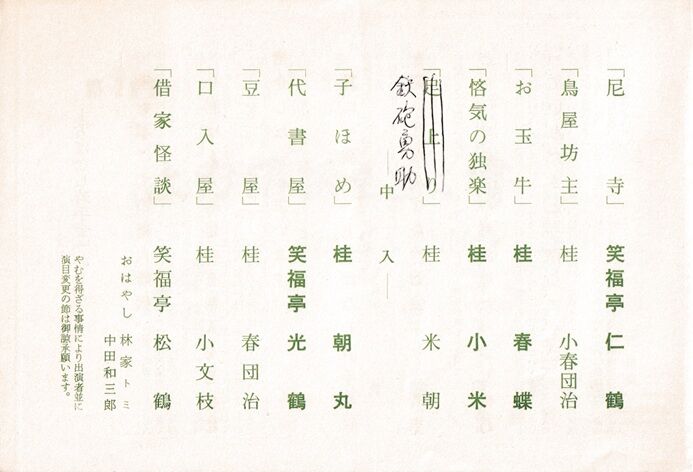 「尼寺」 笑福亭 仁鶴
「鳥屋坊主」 桂 小春団治
「お玉牛」 桂 春蝶
「悋気の独楽」 桂 小米
「起上り」 桂 米朝
鉄砲勇助
―中入―
「子ほめ」 桂 朝丸
「代書屋」 笑福亭 光鶴
「豆屋」 桂 春団治
「口入屋」 桂 小文枝
「借家怪談」 笑福亭 松鶴
おはやし 林家トミ
中田和三郎
やむを得ざる事情により出演者並に
演目変更の節は御諒承願います。